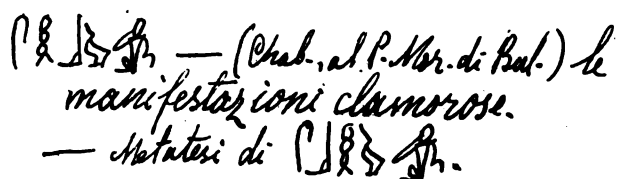 𓋴𓎛𓃀 𓀁 — (Chab., al P. Mor. di Bul.) le
manifestazioni clamorose.
— Metatesi di 𓋴𓃀𓎛 𓀁.